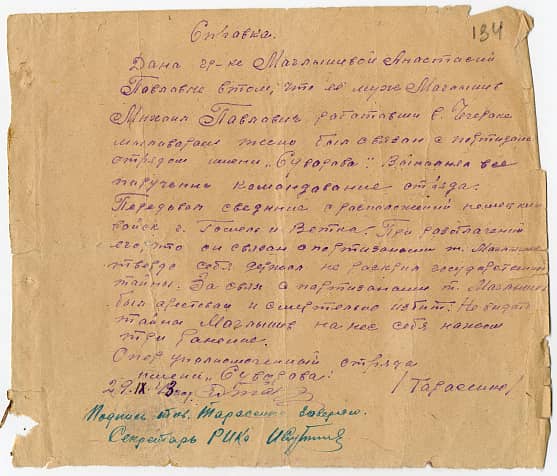 134
Справка.
Дана гр-ке Маглышевой Анастасий
Павловне в том, что её муж Маглышев
Михаил Павлович работавши в
был связан с партизанс
отрядом имени „Суворова". Выполнял все
поручения командование отряда.
Передовал свединия о расположений немецких
войск г. Гомеля и Ветка. При
его, что он связан с партизанами т. Маглышев
твердо себя держал не раскрил государственн
тайны. За связ с партизанами т. Маглышев
был арестован и смертельно избит. Не выдать
тайны Маглышев нанес себя ножом
три ранение.
Опер уполномоченный отряда
имени „Суворова"
29.IX 43 /Тарасенко/
Подпись тов. Тарасенко заверяю.
Секретарь РИКа